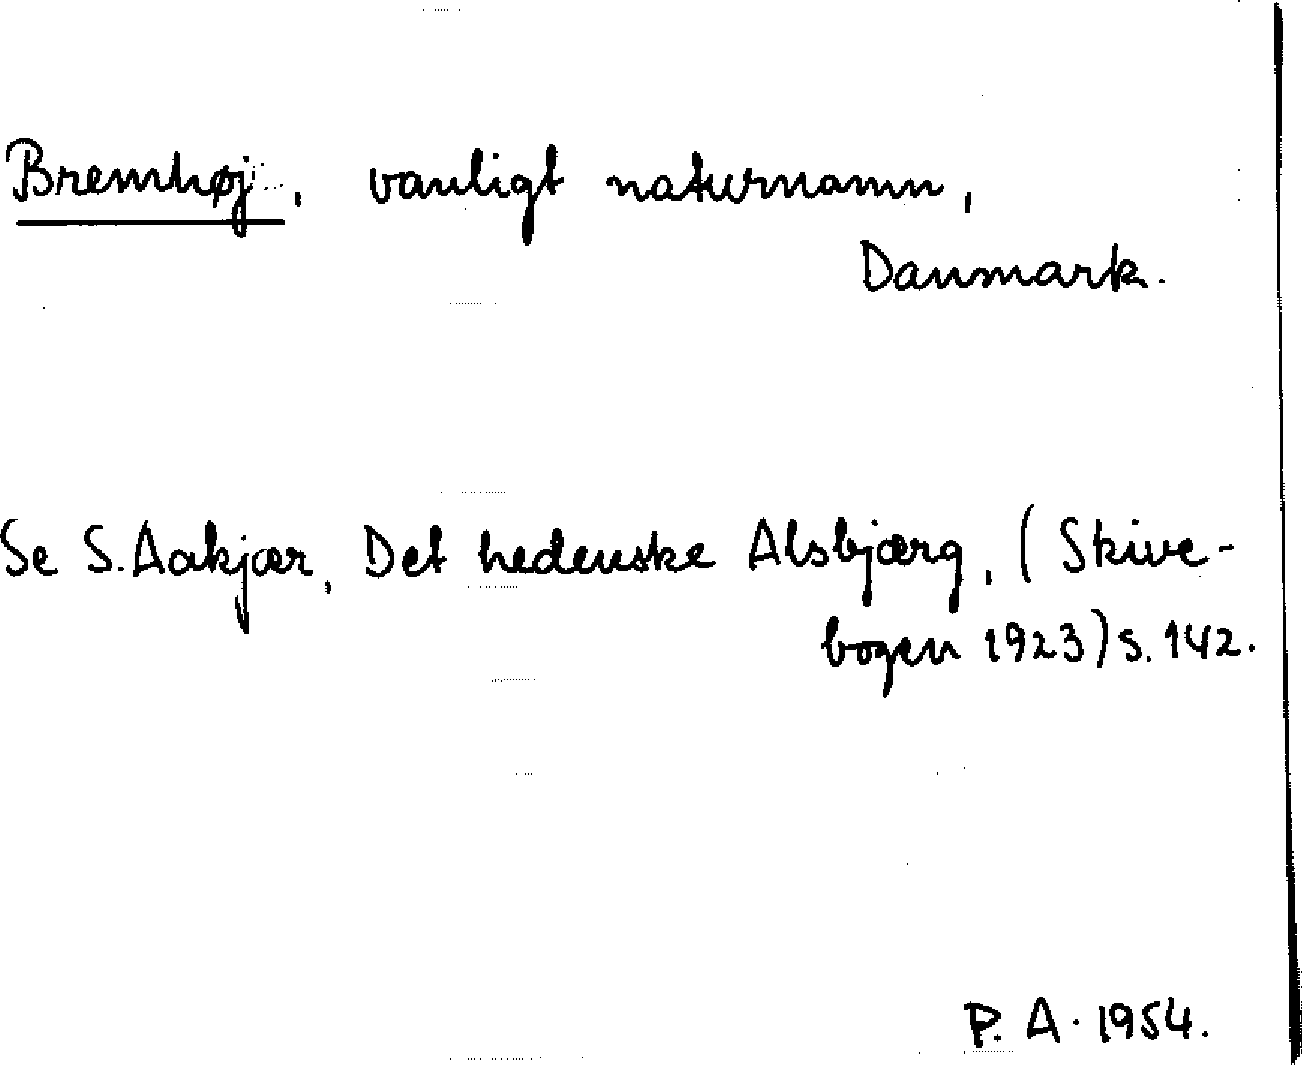 Bremhøj, vanligt naturnamn,
Danmark.
Se S. Aakjær, Det hedenske Alsbjærg, (Skive-
bogen 1923) s. 142.
P. A. 1954.